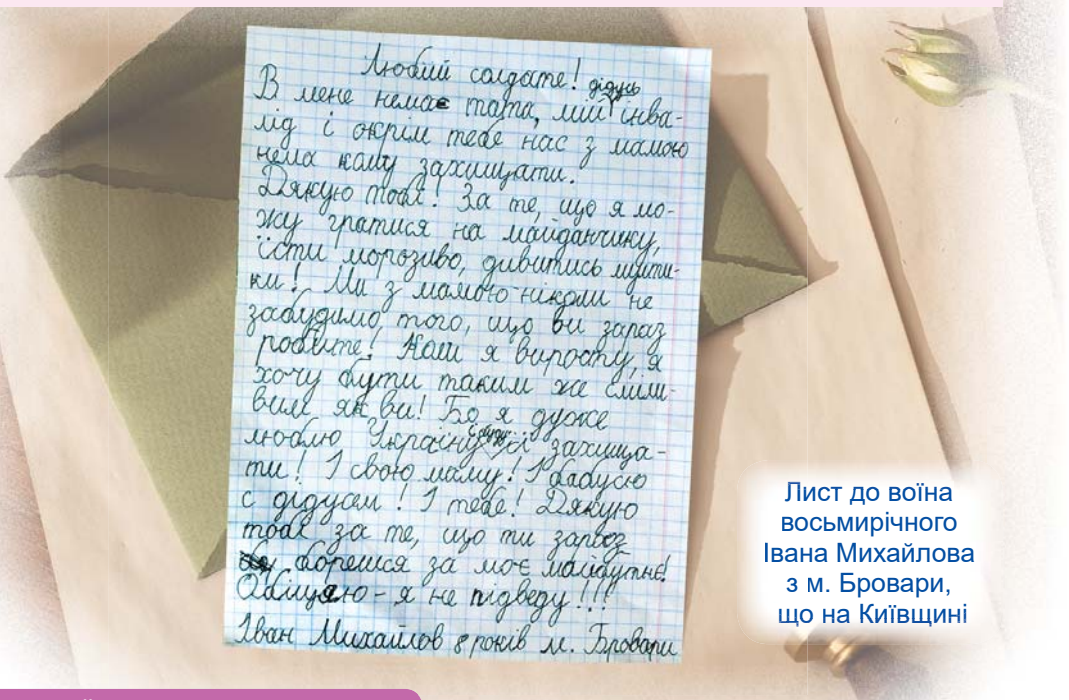 Любий солдате!
дідусь
В мене немає тата, мій інва-
лід і окрім тебе нас з мамою
нема кому захищати.
Дякую тобі! За те, що я мо-
жу гратися на майданчику,
їсти морозиво, дивитись мульти-
ки! Ми з мамою ніколи не
забудимо того, що ви зараз
робите! Коли я виросту, я
хочу бути таким же сміли-
вим як ви! Бо я дуже
люблю Україну і буду її захища-
ти! І свою маму! І бабусю
с дідусем! І тебе! Дякую
тобі за те, що ти зараз
борешся за моє майбутнє!
Обіцяю - я не підведу!!!
Іван Михайлов 8 років м. Бровари
Лист до воїна
восьмирічного
Івана Михайлова
з м. Бровари,
що на Київщині